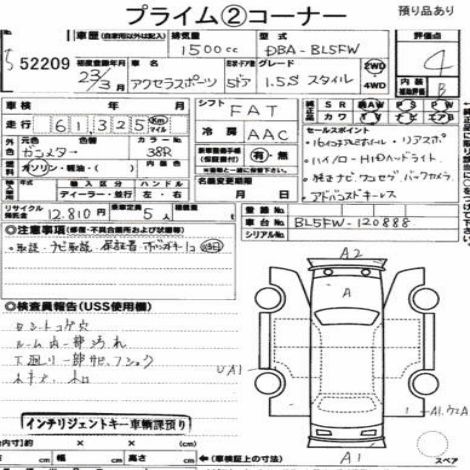 プライム②コーナー 預り品あり
車歴 (自家用以外は記入) 排気量 型式 評価点
52209 1500cc DBA-BL5FW 4
初度登録年月 車名 ドア形状 グレード 2WD 4WD
23/3 アクセラスポーツ 5ドア 1.5S スタイル 内装補助評価 B
車検 年 月 シフト FAT 純正品 SR AW PS PW
走行 61,325 Km マイル 冷房 AAC カワ ナビ TV エアB
元色 色 カラーNo. セールスポイント
ガンメタ 38R ・16インチアルミホイール・リアスポ
燃料 ガソリン・軽油・( ) 新車整備手帳(保証書付) 有・無 ・ハイ/ロー・HIDヘッドライト
輸入車 輸入区分 ハンドル 名義変更期限 ・純正ナビ,ワンセグ,バックカメラ
ディーラー・並行 左・右 月 日 ・アドバンストキーレス
リサイクル預託金 12,810円 乗車定員 5人 積載量
登録No.
車台No. BL5FW-120888
シリアルNo.
◎注意事項(修復・不具合箇所および状態等)
・取説・ナビ取説 保証書
A2
A
◎検査員報告(USS使用欄)
シートコゲ穴
ルーム内一部汚れ
下廻り一部サビ,
UA1
A1
インテリジェントキー車輌課預り
内寸) × ×
長さ cm 幅 cm 高さ cm ←(車検証上の寸法) A1 スペア